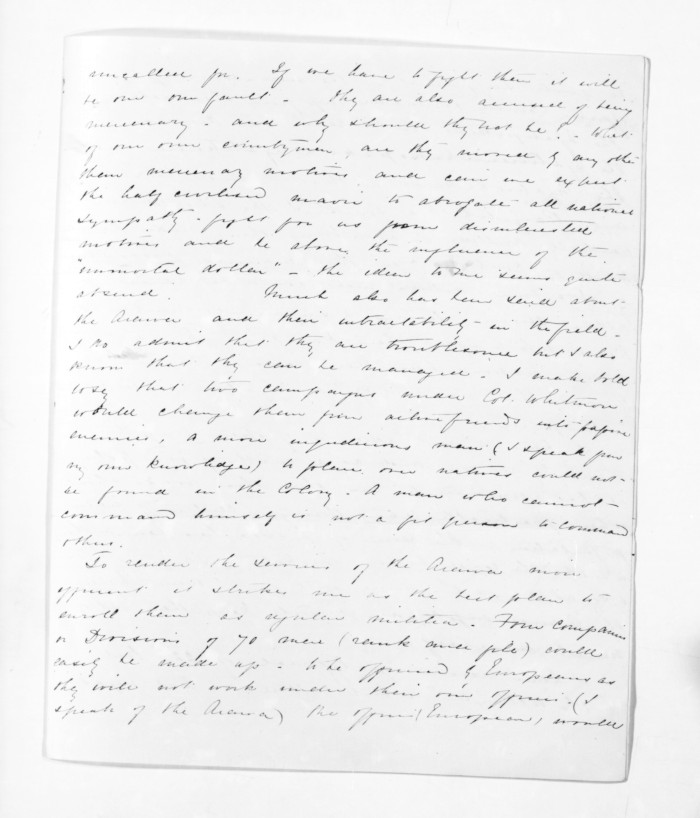 uncalled for. If we have to fight them it will
be our own fault - They are also accused of being
mercenary - and why should they not be? - What
of our own countrymen, are they moved by any other
than mercenary motives and can we expect
the half civilised maori to abrogate all national
sympathy - fight for us from disinterested
motives and be above the influence of the
"immortal dollar" - the idea to me seems quite
absurd. Much also has been said about
the Arawa and their intractability in the field -
I do admit that they are troublesome but I also
know that they can be managed. I make bold
to say that two campaigns under Col. Whitmore
would change them from active friends into passive
enemies, a more injudicious man (I speak from
my own knowledge) to place over natives could not
be found in the Colony. A man who cannot
command himself is not a fit person to command
others.
To render the services of the Arawa more
efficient it strikes me as the best plan to
enroll them as regular militia. Four companies
or Divisions of 70 men (rank and file) could
easily be made up - to be officered by Europeans as
they will not work under their own officers. (I
speak of the Arawa) the officers (European) would